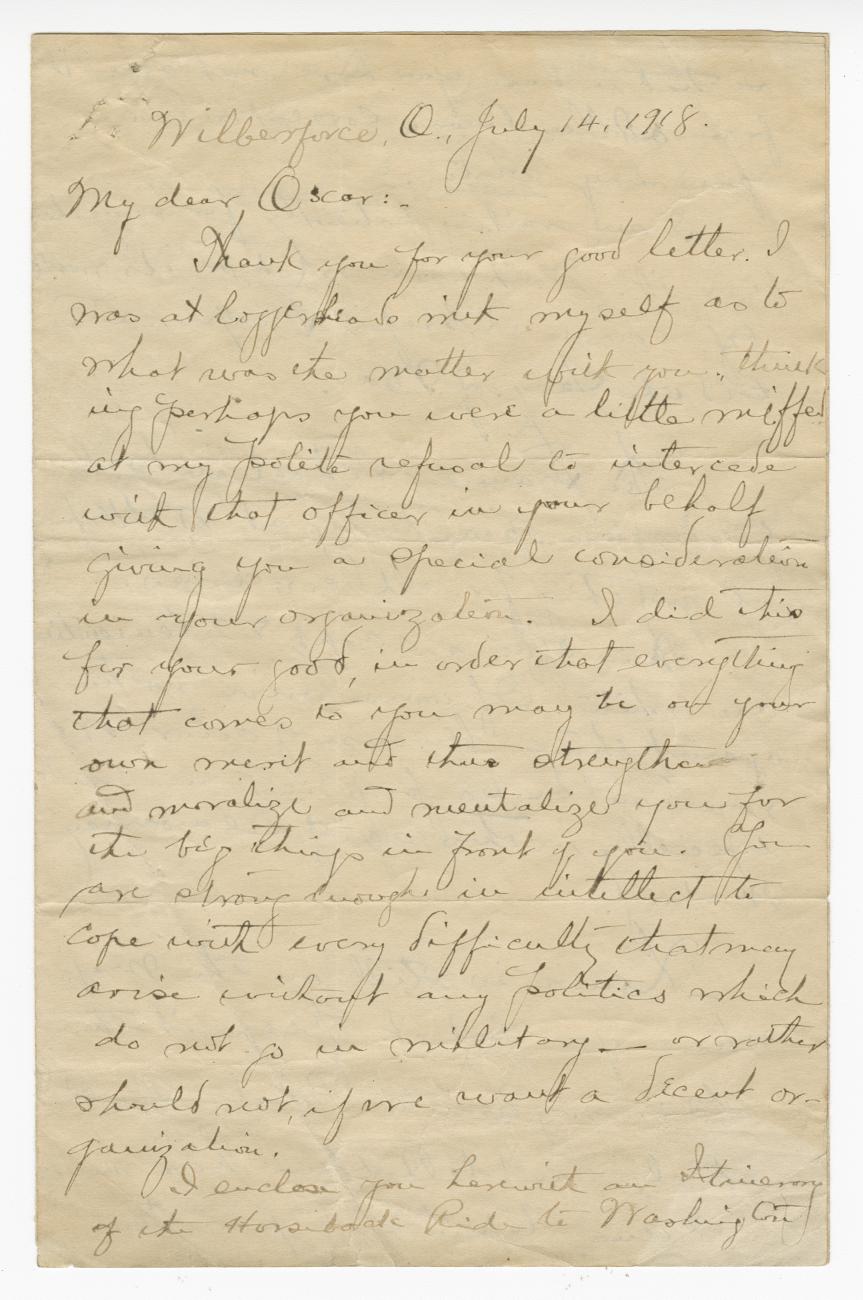 Wilberforce, O., July 14, 1918.
My dear Oscar:-
Thank you for your good letter. I
was at loggerheads with myself as to
what was the matter with you, think
ing perhaps you were a little miffed
at my polite refusal to intercede
with that officer in your behalf
giving you a special consideration
in your organization. I did this
for your good, in order that everything
that comes to you may be on your
own merit and thus strengthen
and moralize and mentalize you for
the big things in front of you. You
are strong enough in intellect to
cope with every difficulty that may
arise without any politics which
do not go in military — or rather
should not, if we want a decent or-
ganization.
I enclose you herewith an Itinerary
of the Horseback Ride to Washington